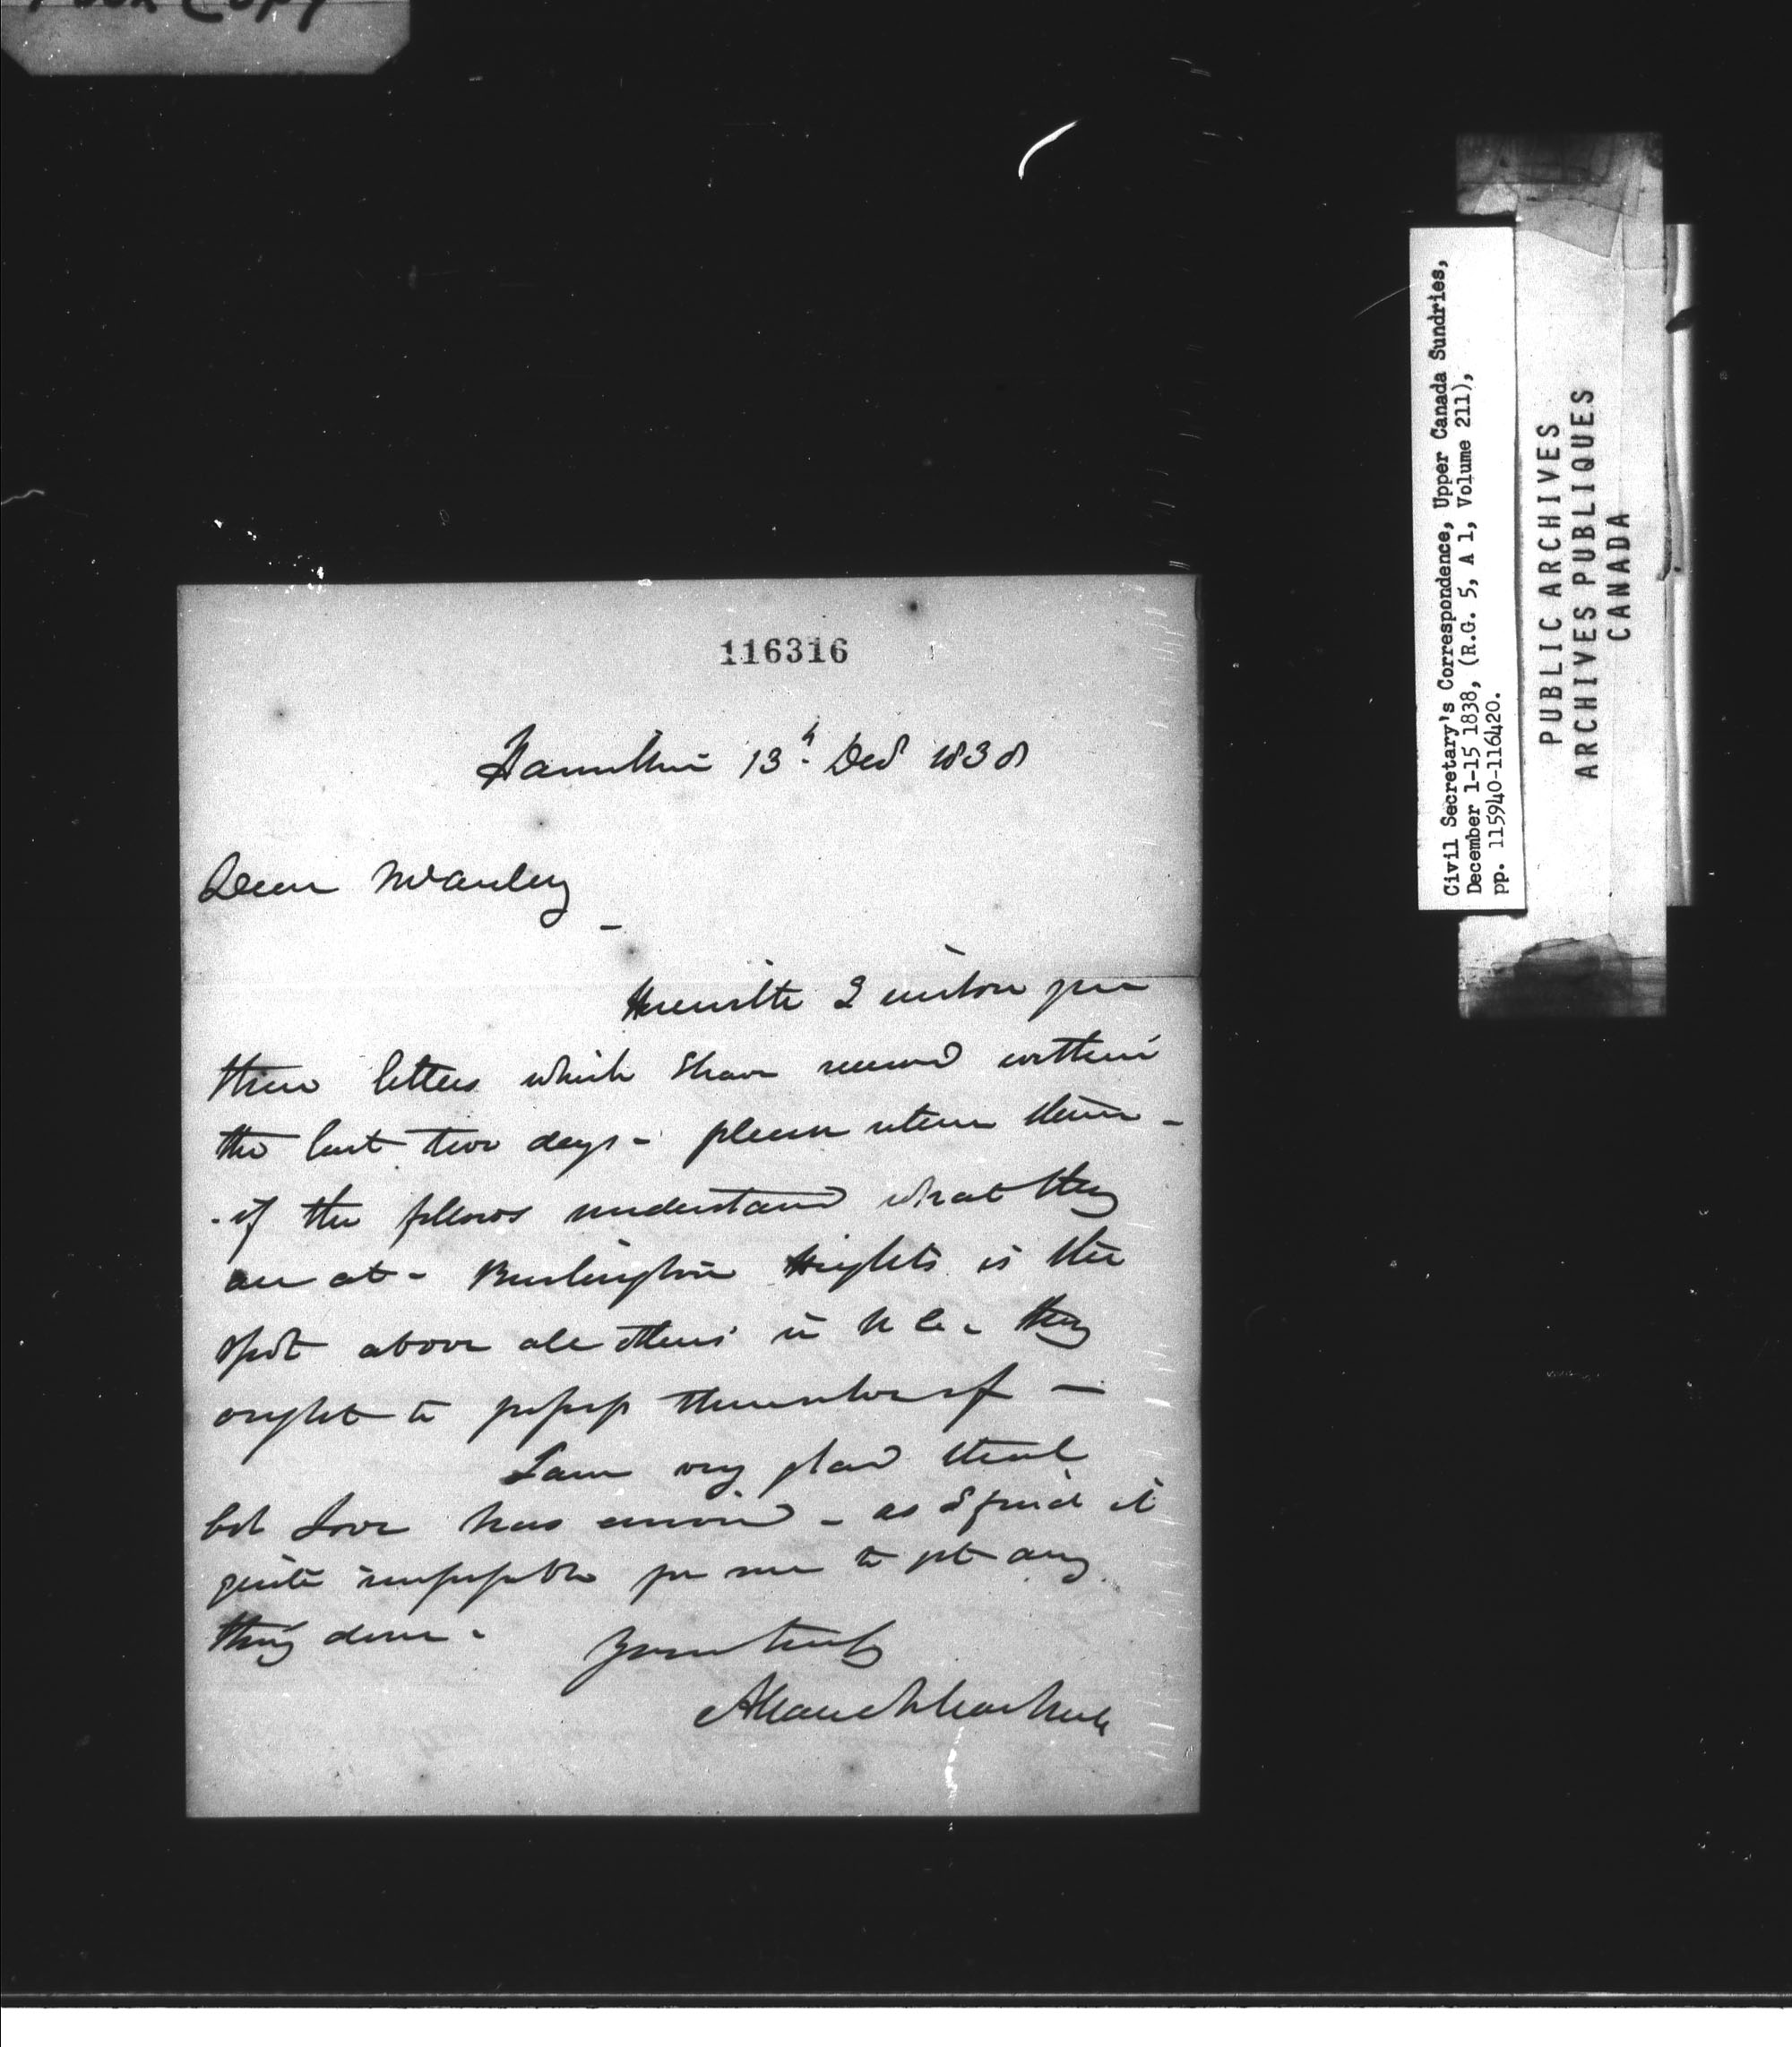 Poor Copy
116316
Hamilton 13th Decr 1838
Dear Macaulay
Herewith I enclose you
three letters which I have received within
the last two days - please return them -
- if the fellows understand what they
are at - Burlington Heights is the
spot above all others in U C - they
ought to possess themselves of —
I am very glad that
Col Love has arrived - as I find it
quite impossible for me to get any
thing done -
Yours truly
Allan N MacNab
Civil Secretary's Correspondence, Upper Canada Sundries,
December 1-15 1838, (R.G. 5, A 1, Volume 211),
pp. 115940-116420.
PUBLIC ARCHIVES
ARCHIVES PUBLIQUES
CANADA